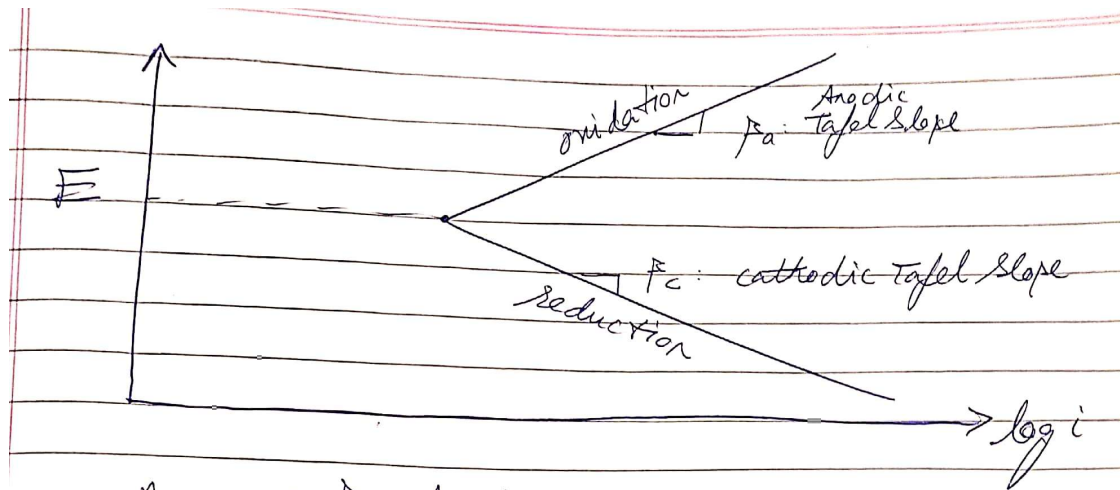 oxidation
Anodic
βa: Tafel Slope
E
βc: cathodic Tafel Slope
reduction
log i